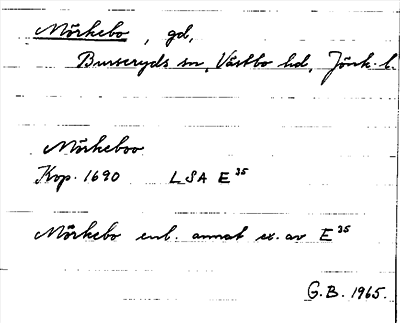 Mörkebo, gd,
Burseryds sn, Västbo hd, Jönk. l.
Mörkeboo
Kop. 1690 LSA E 35
Mörkebo enl. annat ex. av E 35
G.B. 1965.